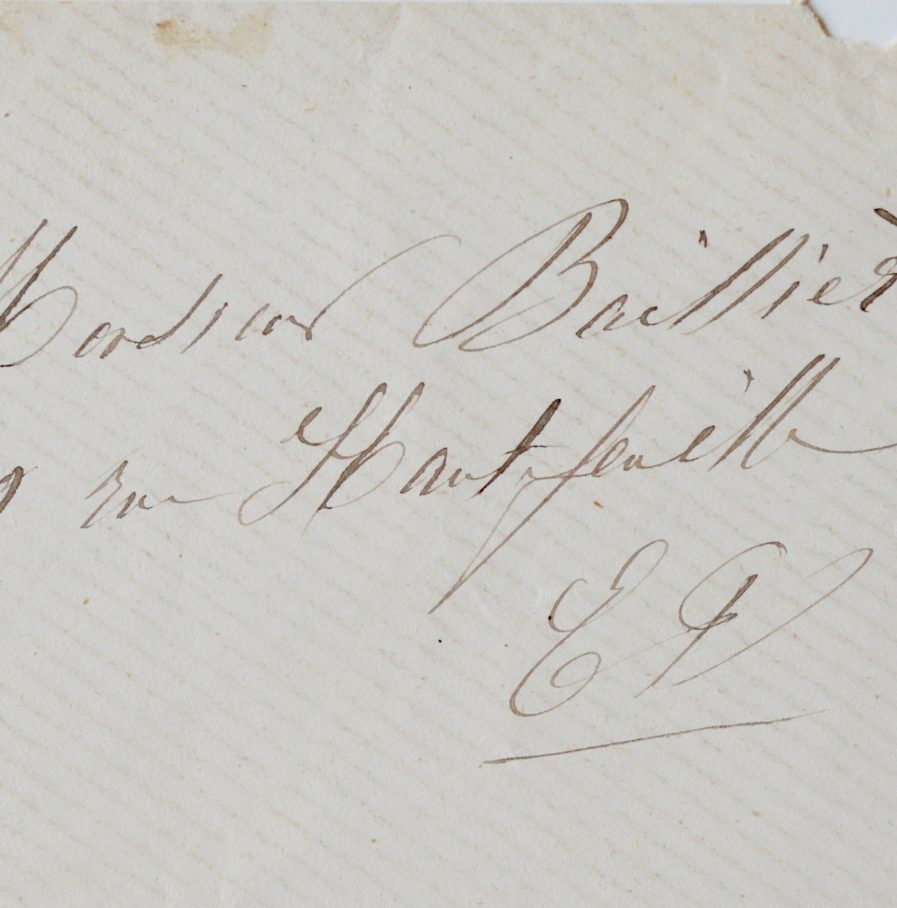 Monsieur Baillièr
9 rue Hautefeuille
EV